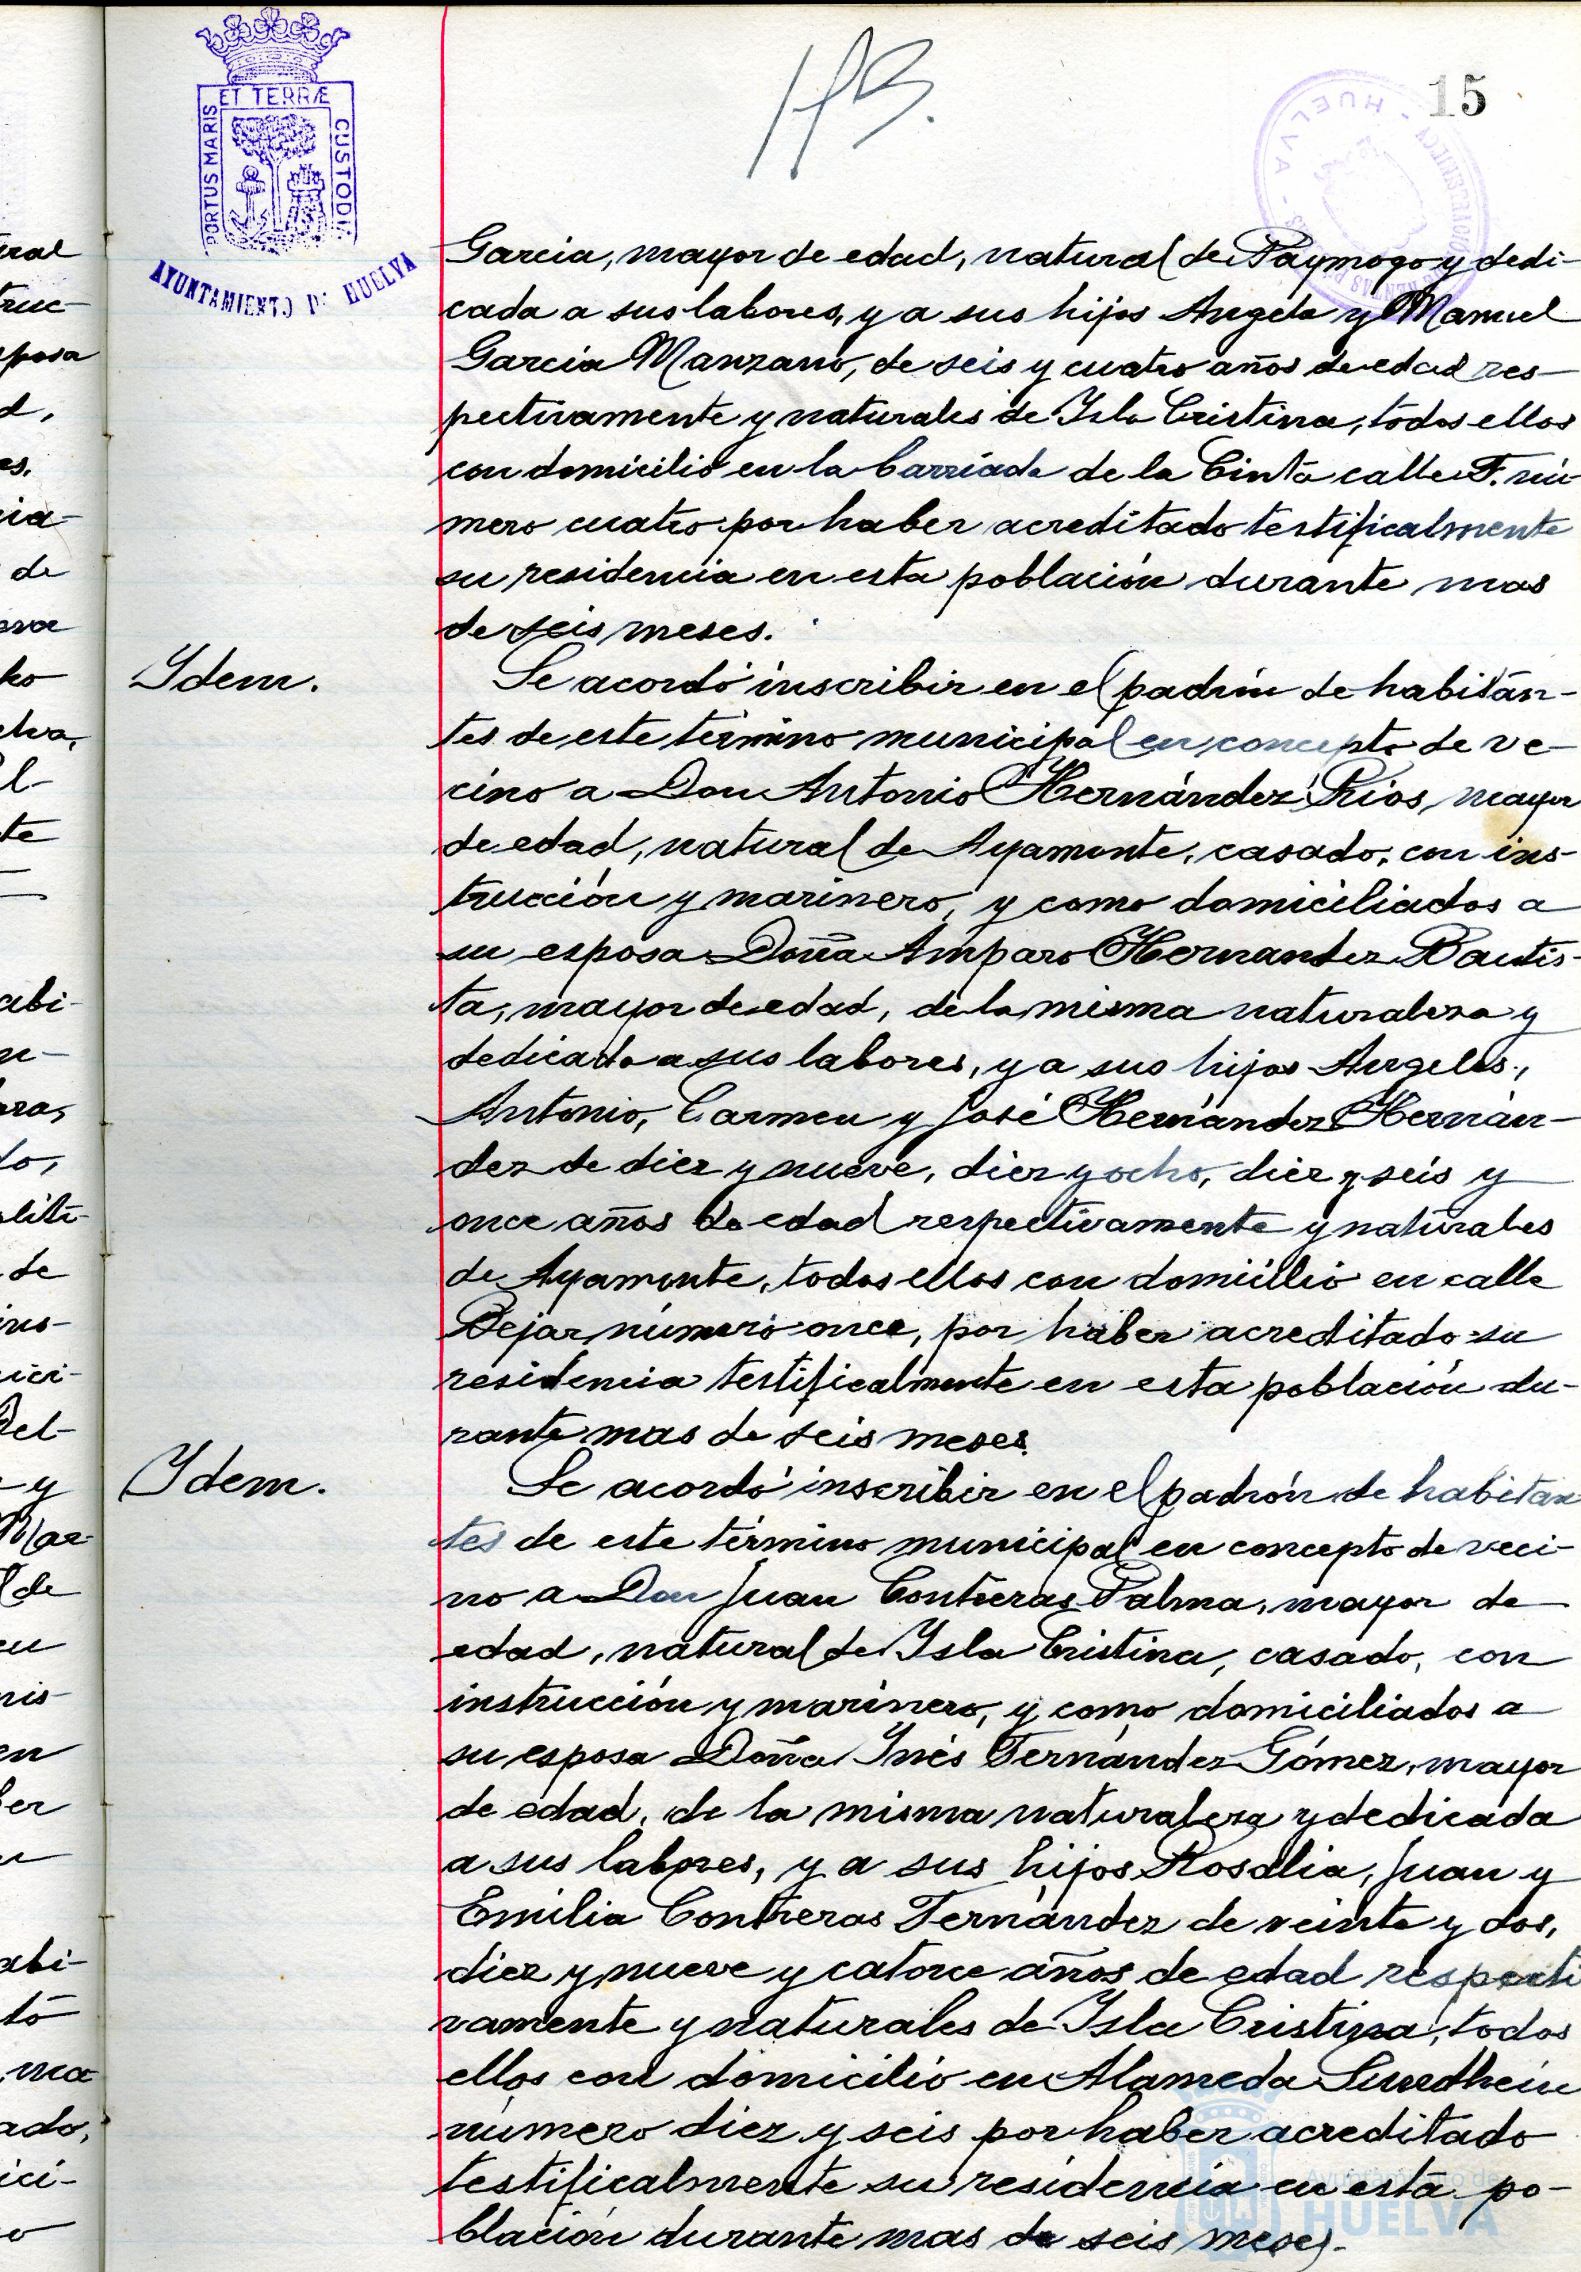 15
PORTUS MARIS ET TERRÆ CUSTODI
AYUNTAMIENTO DE HUELVA
HUELVA
Garcia, mayor de edad, natural de Paymogo y dedi-
cada a sus labores, y a sus hijos Angela y Manuel
Garcia Manzano, de seis y cuatro años de edad res-
pectivamente y naturales de Isla Cristina, todos ellos
con domicilio en la barriada de la Cinta calle F. nú-
mero cuatro por haber acreditado testificalmente
su residencia en esta población durante mas
de seis meses.
Ydem.
Se acordó inscribir en el padrón de habitan-
tes de este término municipal en concepto de ve-
cino a Don Antonio Hernández Rios, mayor
de edad, natural de Ayamonte, casado, con ins-
trucción y marinero, y como domiciliados a
su esposa Doña Amparo Hernandez Bautis-
ta, mayor de edad, de la misma naturaleza y
dedicada a sus labores, y a sus hijos Angeles,
Antonio, Carmen y José Hernández Hernán-
dez de diez y nueve, diez y ocho, diez y seis y
once años de edad respectivamente y naturales
de Ayamonte, todos ellos con domicilio en calle
Bejar número once, por haber acreditado su
residencia testificalmente en esta población du-
rante mas de seis meses.
Ydem.
Se acordó inscribir en el padrón de habitan
tes de este término municipal en concepto de veci-
no a Don Juan Contreras Palma, mayor de
edad, natural de Isla Cristina, casado, con
instrucción y marinero, y como domiciliados a
su esposa Doña Inés Fernández Gómez, mayor
de edad, de la misma naturaleza y dedicada
a sus labores, y a sus hijos Rosalia, Juan y
Emilia Contreras Fernández de veinte y dos,
diez y nueve y catorce años de edad respecti
vamente y naturales de Isla Cristina, todos
ellos con domicilio en Alameda Sundhein
número diez y seis por haber acreditado
testificalmente su residencia en esta po-
blación durante mas de seis meses.
Ayuntamiento de
HUELVA